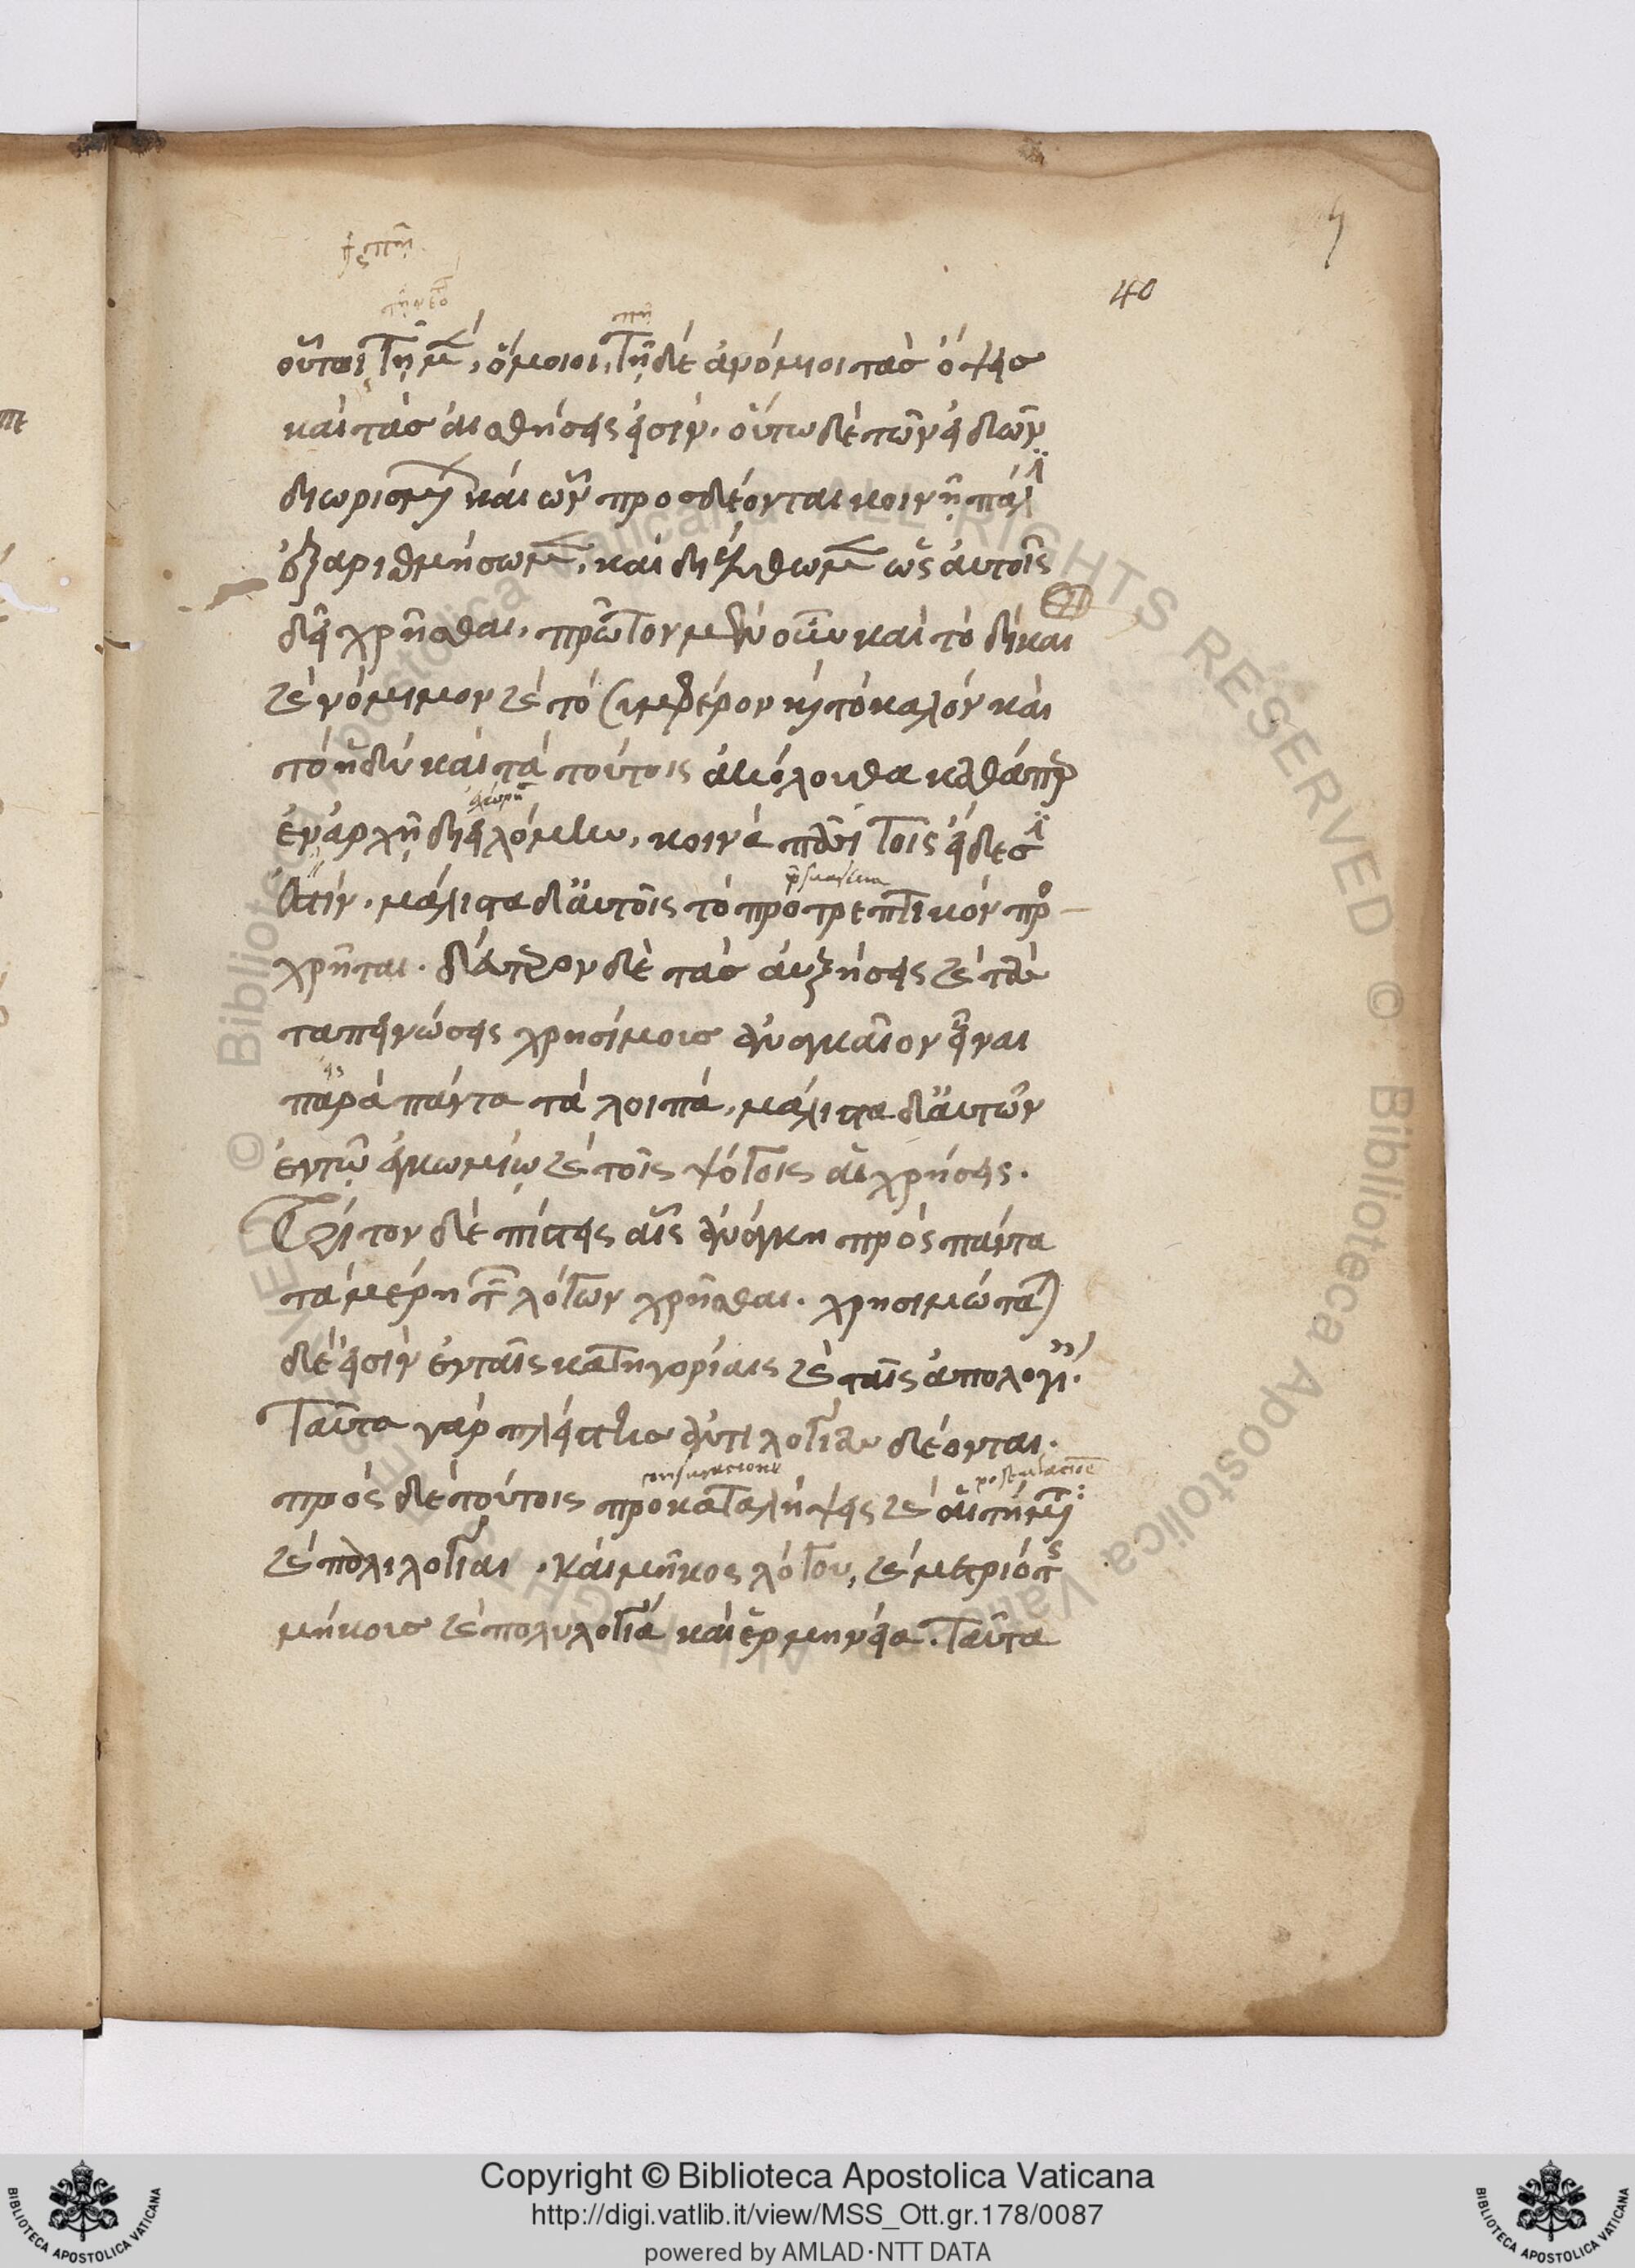 40
οὗτοι τῇ μὲν, ὅμοιοι, τῇ δὲ ἀνόμοιοι τὰς ὄψεις
καὶ τὰς αἰσθήσεις εἰσίν. οὕτω δὲ τῶν εἰδῶν
διωρισμένων καὶ ὧν προσδέονται κοινῇ πάλιν
ἐξαριθμήσωμεν, καὶ διέλθωμεν ὡς αὐτοῖς
δεῖ χρῆσθαι, πρῶτον μὲν οὖν καὶ τὸ δίκαι
καὶ νόμιμον καὶ τὸ συμφέρον καὶ τὸ καλὸν καὶ
τὸ ἡδὺ καὶ τὰ τούτοις ἀκόλουθα καθάπερ
ἐν ἀρχῇ διειλόμην, κοινὰ πᾶσι τοῖς εἴδεσ
ἐστίν. μάλιστα δ' αὐτοῖς τὸ προτρεπτικὸν προ
χρῆται. δεύτερον δὲ τὰς αὐξήσεις καὶ τὰς
ταπεινώσεις χρησίμους ἀναγκαῖον εἶναι
παρὰ πάντα τὰ λοιπά, μάλιστα δ' αὐτῶν
ἐν τῷ ἐγκωμίῳ καὶ τοῖς ψόγοις αἱ χρήσεις.
Τρίτον δὲ πίστεις αἷς ἀνάγκη πρὸς πάντα
τὰ μέρη τῶν λόγων χρῆσθαι. χρησιμώταται
δέ εἰσιν ἐν ταῖς κατηγορίαις καὶ ταῖς ἀπολογίαις.
Ταῦτα γὰρ πλείστης ἀντιλογίας δέονται.
πρὸς δὲ τούτοις προκαταλήψεις καὶ αἰτήματα
καὶ παλιλογίαι. καὶ μῆκος λόγου, καὶ μετριότης
μήκους καὶ πολυλογία καὶ ἑρμηνεία. Ταῦτα
Copyright © Biblioteca Apostolica Vaticana
http://digi.vatlib.it/view/MSS_Ott.gr.178/0087
powered by AMLAD·NTT DATA